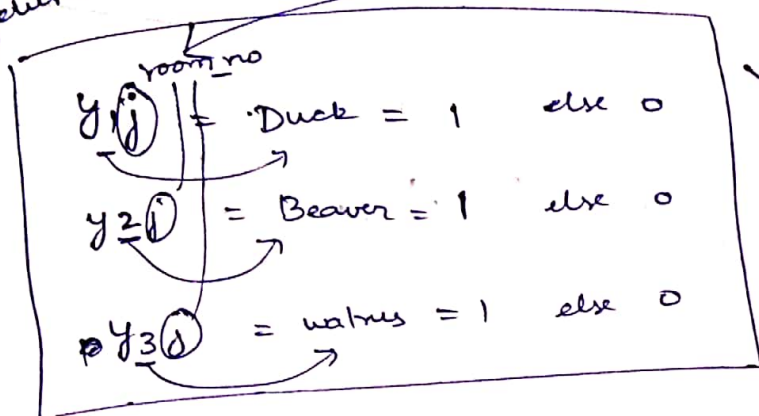 room_no
y1j = Duck = 1 else 0
y2j = Beaver = 1 else 0
y3j = walrus = 1 else 0